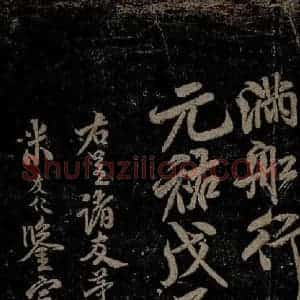 满船行
元祐戊
右三诸友等
米友仁鉴定
shufaziliao.com